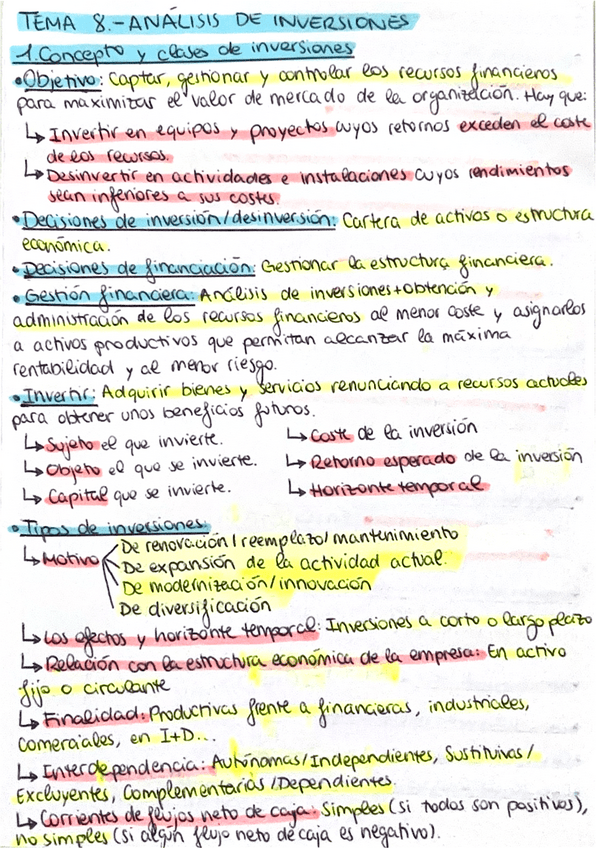 TEMA 8.-ANÁLISIS DE INVERSIONES
1.Concepto y clases de inversiones
•Objetivo: Captar, gestionar y controlar los recursos financieros
para maximizar el valor de mercado de la organización. Hay que:
↳ Invertir en equipos y proyectos cuyos retornos exceden el coste
de los recursos.
↳ Desinvertir en actividades e instalaciones cuyos rendimientos
sean inferiores a sus costes.
•Decisiones de inversión/desinversión: Cartera de activos o estructura
económica.
•Decisiones de financiación: Gestionar la estructura financiera.
•Gestión financiera: Análisis de inversiones+obtención y
administración de los recursos financieros al menor coste y asignarlos
a activos productivos que permitan alcanzar la máxima
rentabilidad y al menor riesgo.
•Invertir: Adquirir bienes y servicios renunciando a recursos actuales
para obtener unos beneficios futuros.
↳ Sujeto el que invierte. ↳ Coste de la inversión
↳ Objeto el que se invierte. ↳ Retorno esperado de la inversión
↳ Capital que se invierte. ↳ Horizonte temporal
•Tipos de inversiones
↳ Motivo De renovación/reemplazo/mantenimiento
De expansión de la actividad actual.
De modernización/innovación
De diversificación
↳ Los efectos y horizonte temporal: Inversiones a corto o largo plazo
↳ Relación con la estructura económica de la empresa: En activo
fijo o circulante
↳ Finalidad: Productivas frente a financieras, industriales,
comerciales, en I+D...
↳ Interdependencia: Autónomas/Independientes, Sustitutivas/
Excluyentes, Complementarias/Dependientes.
↳ Corrientes de flujos neto de caja: Simples (si todos son positivos),
no simples (si algún flujo neto de caja es negativo).